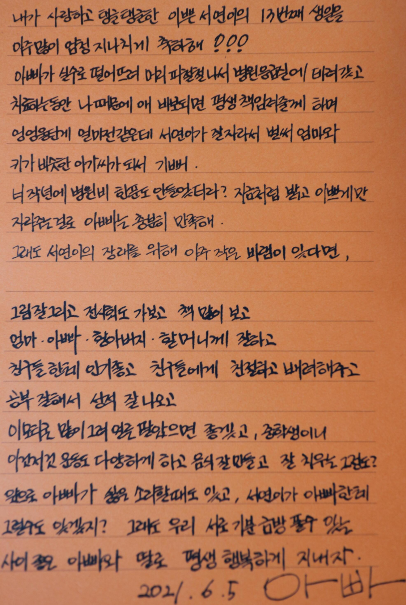 내가 사랑하고 탱글탱글한 이쁜 서연이의 13번째 생일을
아주많이 엄청 지나치게 축하해 !!!
아빠가 실수로 떨어뜨려 머리 파랗질나서 병원응급실에 데려갔고
치료하는동안 나 때문에 애 바보되면 평생 책임져줄게 하며
엉엉울던게 얼마전같은데 서연이가 잘자라서 벌써 엄마와
키가 비슷한 아가씨가 되서 기뻐.
너 작년에 병원비 한푼도 안들었더라? 지금처럼 밝고 이쁘게만
자라주는걸로 아빠는 충분히 만족해.
그래도 서연이의 장래를 위해 아주 작은 바램이 있다면,
그림 잘그리고 전시회도 가보고 책 많이 보고
엄마·아빠·할아버지·할머니께 잘하고
친구들한테 인기좋고 친구들에게 친절하고 배려해주고
공부 잘해서 성적 잘 나오고
이모티콘 많이 그려 얼른 팔았으면 좋겠고, 중학생이니
운동도 다양하게 하고 음식 잘 만들고 잘 치우는 그런거?
앞으로 아빠가 싫은 소리할때도 있고, 서연이가 아빠한테
그럴수도 있겠지? 그래도 우리 서로 기분 금방 풀수 있는
사이 좋은 아빠와 딸로 평생 행복하게 지내자.
2021.6.5 아빠